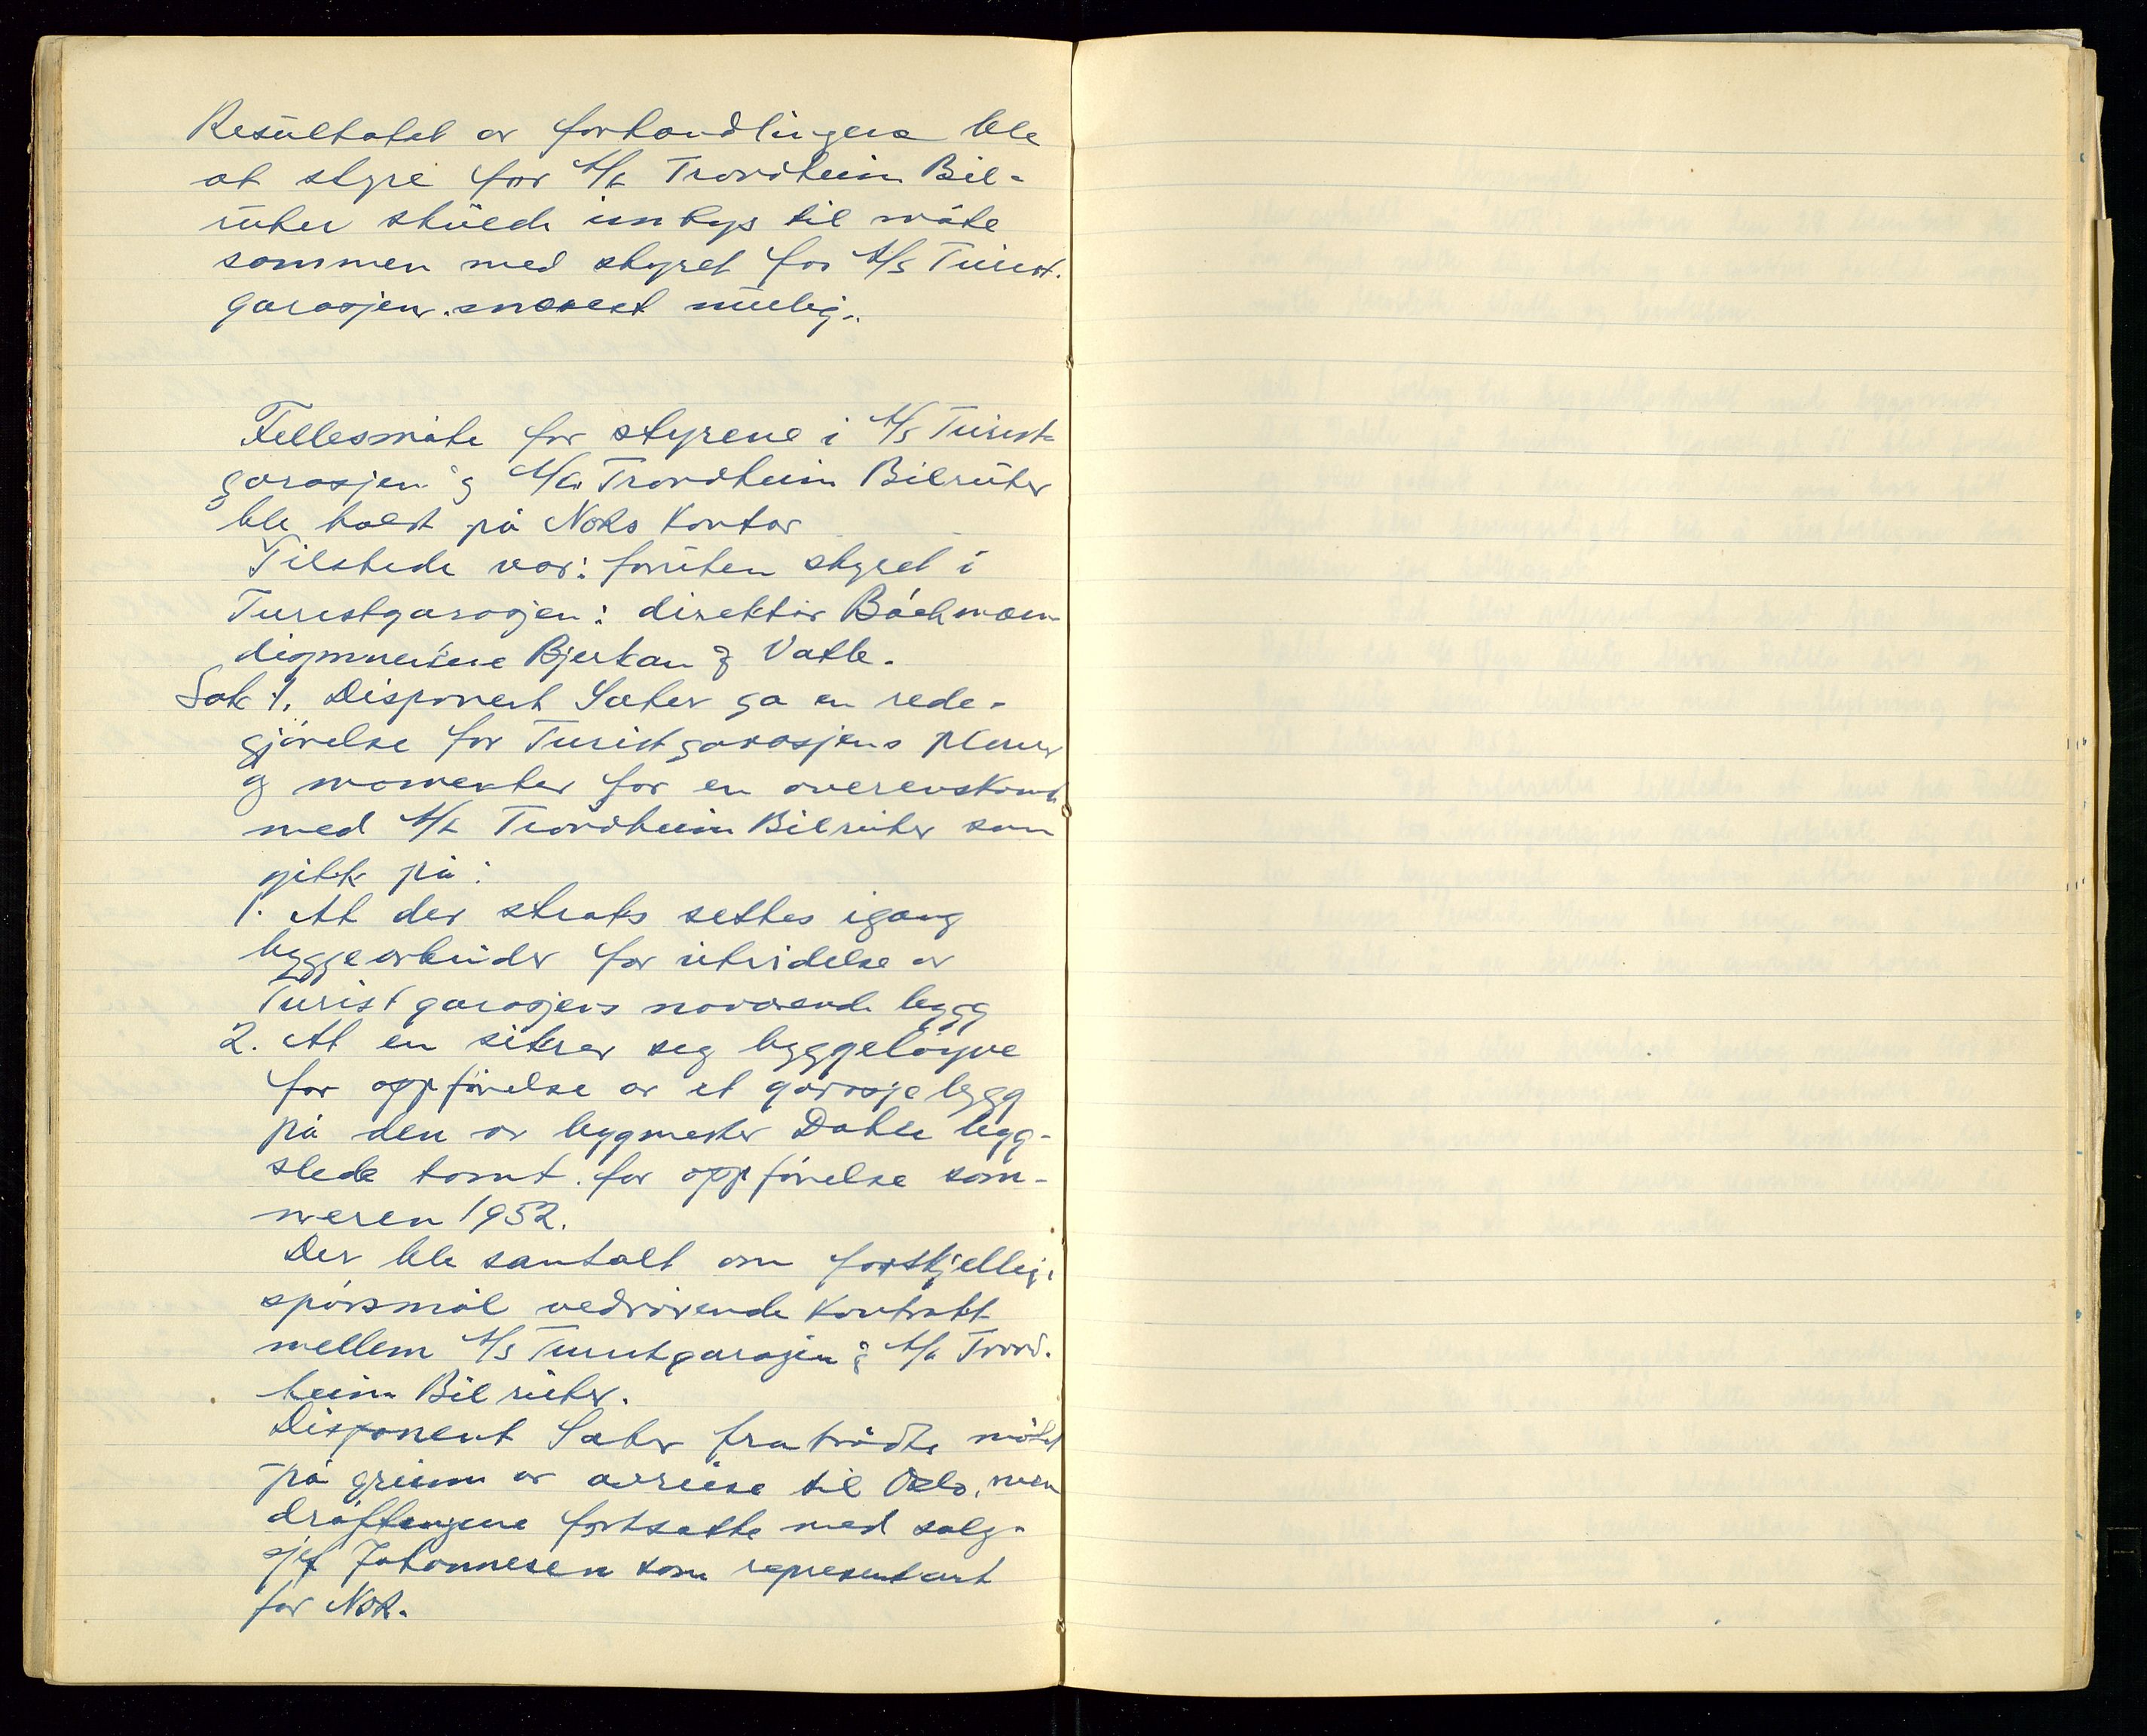 Resultatet av forhandlingene ble
at styre for A/L Trondheim Bil-
ruter skulde innbys til møte
sammen med styret for A/S Turist-
garasjen. snarest mulig.
Fellesmøte for styrene i A/S Turist-
garasjen og A/L Trondheim Bilruter
ble holdt på Noks Kontor
Tilstede var: foruten styret i
Turistgarasjen: direktør Bachmann
Bjerkan og Vatle.
Sak 1. Disponent Sæter ga en rede-
gjørelse for Turistgarasjens planer
og momenter for en overenskomst
med A/L Trondheim Bilruter som
gikk på:
1. At der straks settes igang
byggearbeider for utvidelse av
Turistgarasjens nåværende bygg
2. At en sikrer seg byggeløyve
for oppførelse av et garasjebygg
på den av byggmester Dahle bygg-
slede tomt. for oppførelse som-
meren 1952.
Der ble samtalt om forskjellige
spørsmål vedrørende Kontrakt
mellem A/S Turistgarasjen og A/L Trond-
heim Bilruter.
Disponent Sæter fratrådte møtet
på grunn av avreise til Oslo, men
drøftingene fortsatte med salg-
sjef Johannesen som representant
for NOK.